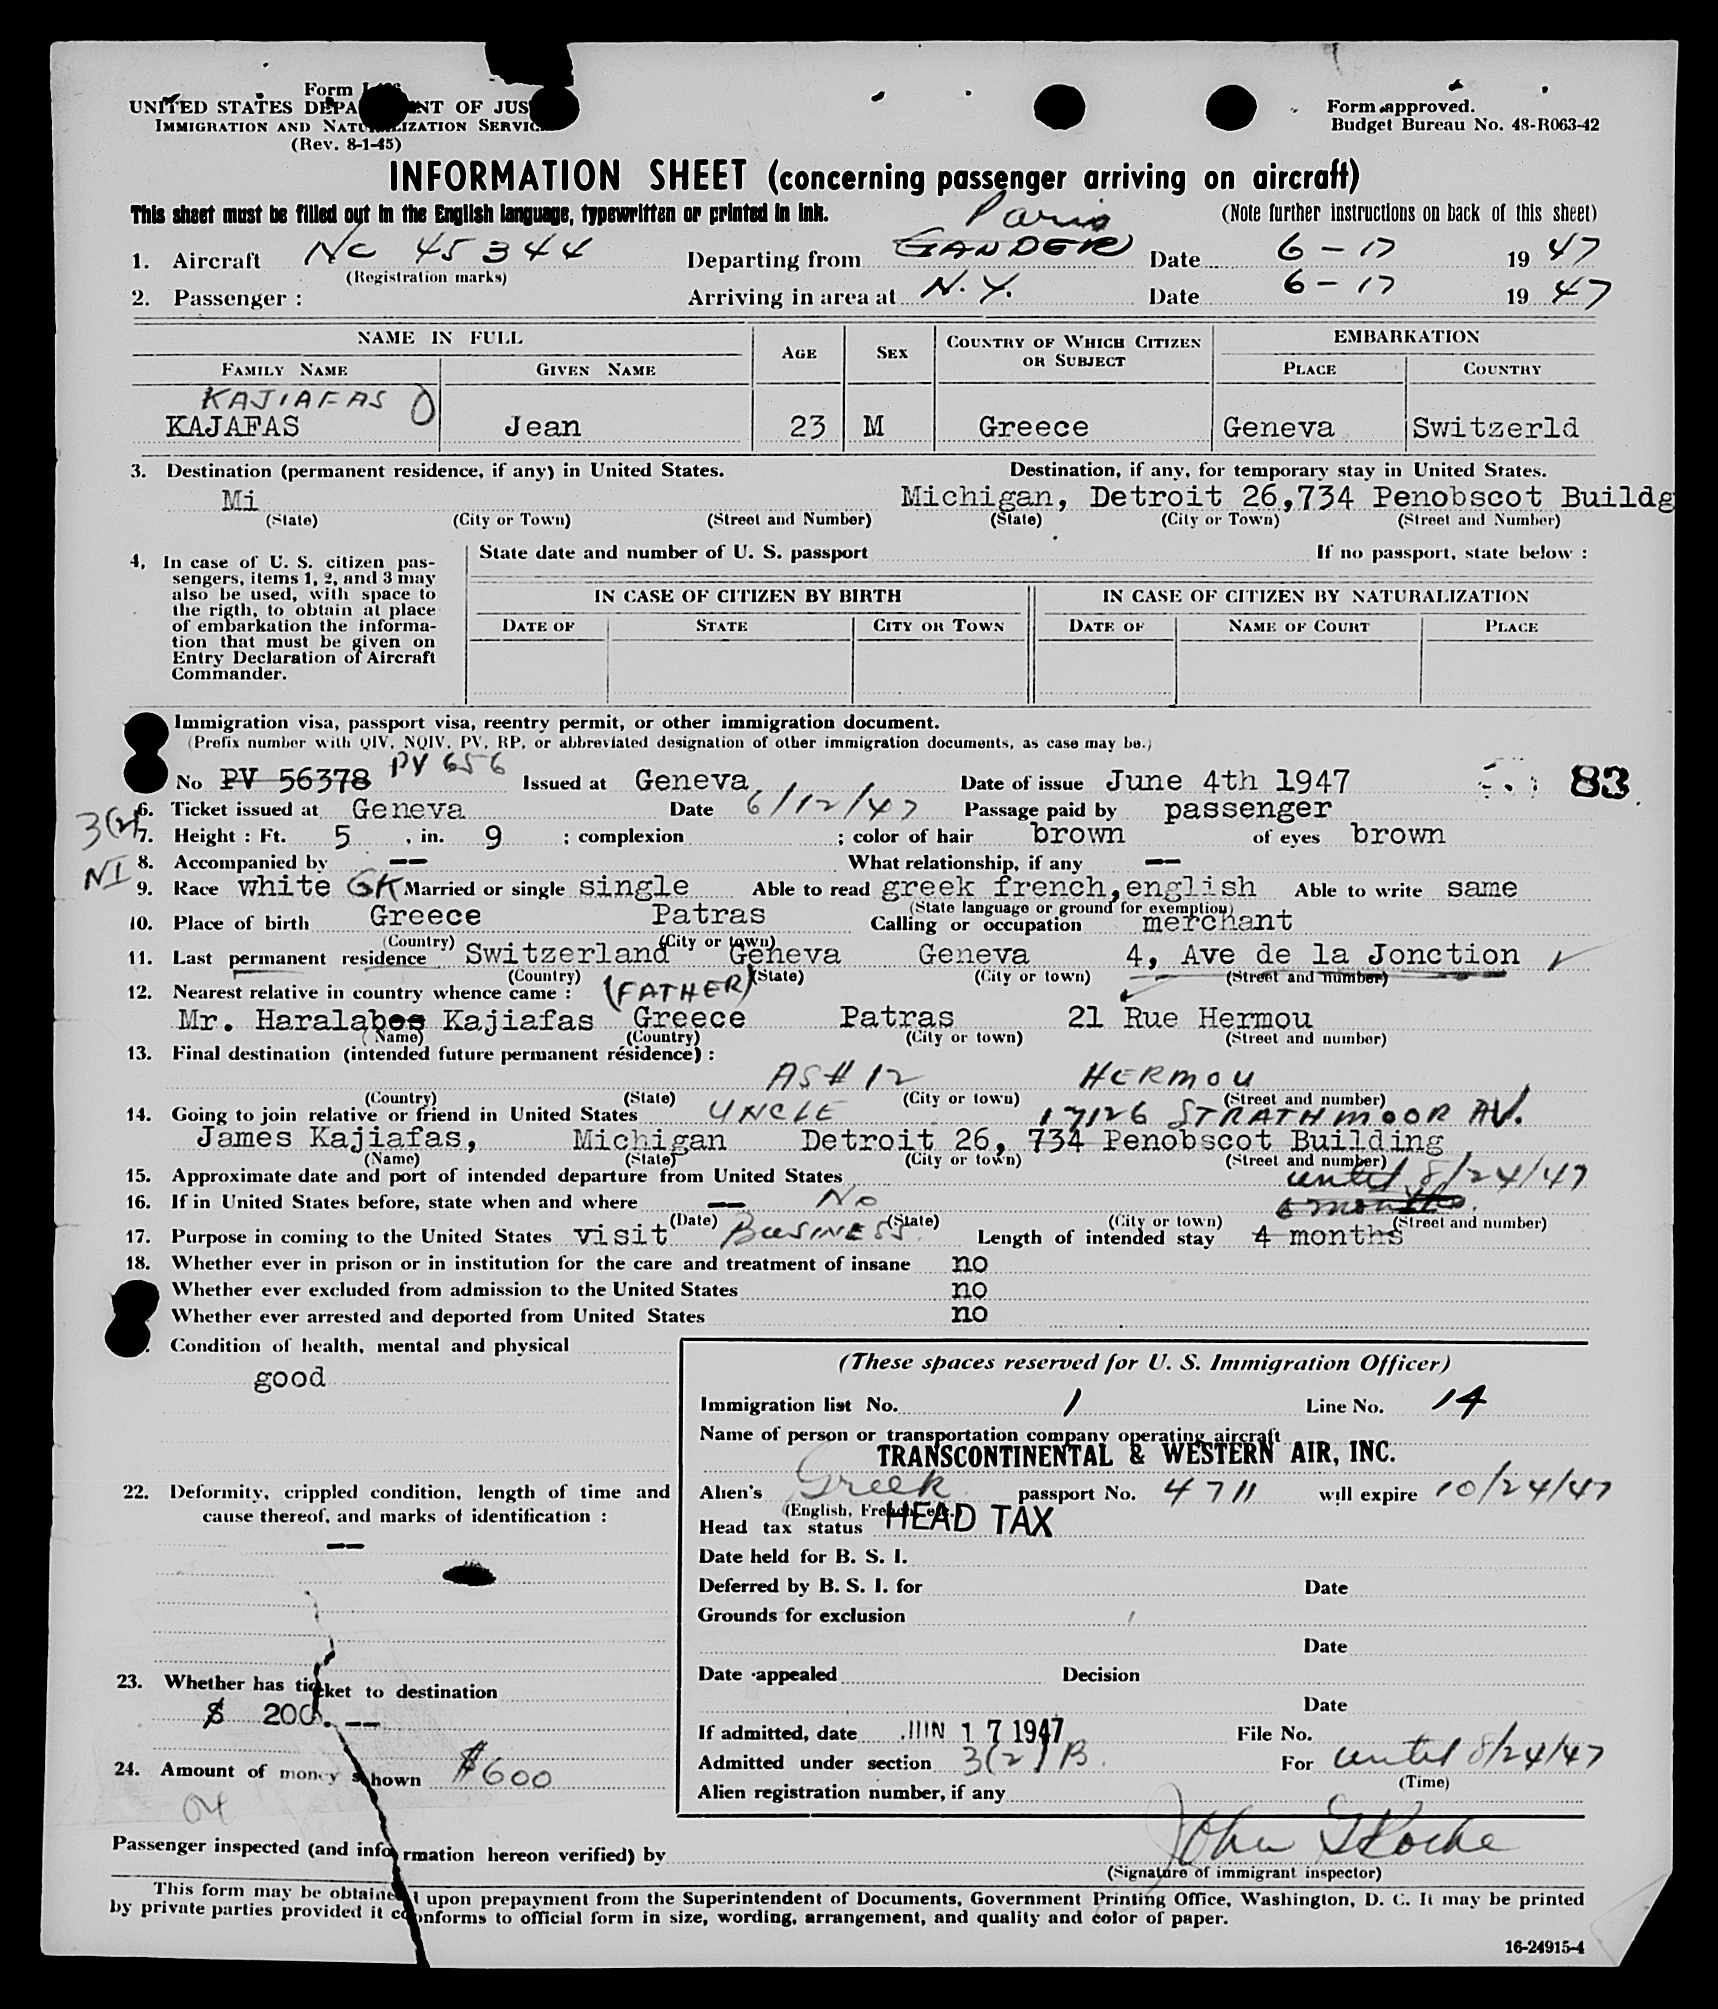 Form
UNITED STATES DEPA NT OF JUS
IMMIGRATION AND NATU IZATION SERVIC
(Rev. 8-1-45)
Form approved.
Budget Bureau No. 48-R063-42
INFORMATION SHEET (concerning passenger arriving on aircraft)
This sheet must be filled out in the English language, typewritten or printed in ink.
(Note further instructions on back of this sheet)
Paris
1. Aircraft NC 45344 Departing from GANDER Date 6-17 1947
(Registration marks)
2. Passenger : Arriving in area at N.Y. Date 6-17 1947
NAME IN FULL AGE SEX COUNTRY OF WHICH CITIZEN OR SUBJECT EMBARKATION
FAMILY NAME GIVEN NAME PLACE COUNTRY
KAJIAFAS
KAJAFAS Jean 23 M Greece Geneva Switzerld
3. Destination (permanent residence, if any) in United States. Destination, if any, for temporary stay in United States.
Mi Michigan, Detroit 26,734 Penobscot Buildg
(State) (City or Town) (Street and Number) (State) (City or Town) (Street and Number)
4, In case of U. S. citizen pas-
sengers, items 1, 2, and 3 may
also be used, with space to
the rigth, to obtain at place
of embarkation the informa-
tion that must be given on
Entry Declaration of Aircraft
Commander.
State date and number of U. S. passport If no passport, state below :
IN CASE OF CITIZEN BY BIRTH IN CASE OF CITIZEN BY NATURALIZATION
DATE OF STATE CITY OR TOWN DATE OF NAME OF COURT PLACE
Immigration visa, passport visa, reentry permit, or other immigration document.
(Prefix number with QIV, NQIV, PV, RP, or abbreviated designation of other immigration documents, as case may be.)
No PV 56378 PV 656 Issued at Geneva Date of issue June 4th 1947 83
6. Ticket issued at Geneva Date 6/12/47 Passage paid by passenger
3(2)
7. Height : Ft. 5 , in. 9 ; complexion ; color of hair brown of eyes brown
8. Accompanied by -- What relationship, if any --
NI
9. Race white GK Married or single single Able to read greek french,english Able to write same
(State language or ground for exemption)
10. Place of birth Greece Patras Calling or occupation merchant
(Country) (City or town)
11. Last permanent residence Switzerland Geneva Geneva 4, Ave de la Jonction
(Country) (State) (City or town) (Street and number)
12. Nearest relative in country whence came : (FATHER)
Mr. Haralabos Kajiafas Greece Patras 21 Rue Hermou
(Name) (Country) (City or town) (Street and number)
13. Final destination (intended future permanent résidence) :
AS # 12 HERMOU
(Country) (State) (City or town) (Street and number)
14. Going to join relative or friend in United States UNCLE 17126 STRATHMOOR AV.
James Kajiafas, Michigan Detroit 26, 734 Penobscot Building
(Name) (State) (City or town) (Street and number)
15. Approximate date and port of intended departure from United States until 8/24/47
16. If in United States before, state when and where -- No 6 months.
(Date) (State) (City or town) (Street and number)
17. Purpose in coming to the United States visit BUSINESS. Length of intended stay 4 months
18. Whether ever in prison or in institution for the care and treatment of insane no
Whether ever excluded from admission to the United States no
Whether ever arrested and deported from United States no
Condition of health, mental and physical
good
22. Deformity, crippled condition, length of time and
cause thereof, and marks of identification :
--
23. Whether has ticket to destination
$ 200. --
24. Amount of money shown $600
(These spaces reserved for U. S. Immigration Officer)
Immigration list No. 1 Line No. 14
Name of person or transportation company operating aircraft
TRANSCONTINENTAL & WESTERN AIR, INC.
Alien's Greek passport No. 4711 will expire 10/24/47
(English, French, etc.)
Head tax status HEAD TAX
Date held for B. S. I.
Deferred by B. S. I. for Date
Grounds for exclusion
Date
Date appealed Decision
Date
If admitted, date JUN 17 1947 File No.
Admitted under section 3(2)B. For until 8/24/47
(Time)
Alien registration number, if any
Passenger inspected (and information hereon verified) by John G Roche
(Signature of immigrant inspector)
This form may be obtained upon prepayment from the Superintendent of Documents, Government Printing Office, Washington, D. C. It may be printed
by private parties provided it conforms to official form in size, wording, arrangement, and quality and color of paper.
16-24915-4